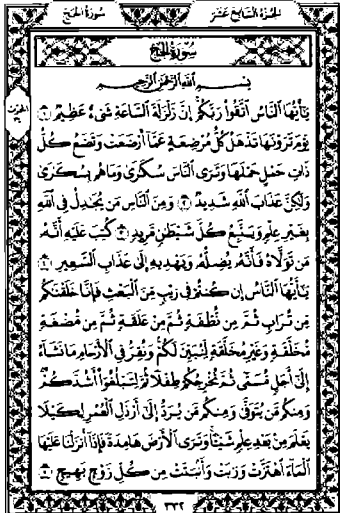 سُورَةُ الحَجّ
الجُزْءُ السَّابِعَ عَشَرَ
سُورَةُ الحَجّ
بِسْمِ اللَّهِ الرَّحْمَٰنِ الرَّحِيمِ
يَٰٓأَيُّهَا النَّاسُ اتَّقُوا رَبَّكُمْ إِنَّ زَلْزَلَةَ السَّاعَةِ شَىْءٌ عَظِيمٌ ۝١
يَوْمَ تَرَوْنَهَا تَذْهَلُ كُلُّ مُرْضِعَةٍ عَمَّآ أَرْضَعَتْ وَتَضَعُ كُلُّ
ذَاتِ حَمْلٍ حَمْلَهَا وَتَرَى النَّاسَ سُكَٰرَىٰ وَمَا هُم بِسُكَٰرَىٰ
وَلَٰكِنَّ عَذَابَ اللَّهِ شَدِيدٌ ۝٢ وَمِنَ النَّاسِ مَن يُجَٰدِلُ فِى اللَّهِ
بِغَيْرِ عِلْمٍ وَيَتَّبِعُ كُلَّ شَيْطَٰنٍ مَّرِيدٍ ۝٣ كُتِبَ عَلَيْهِ أَنَّهُۥ
مَن تَوَلَّاهُ فَأَنَّهُۥ يُضِلُّهُۥ وَيَهْدِيهِ إِلَىٰ عَذَابِ السَّعِيرِ ۝٤
يَٰٓأَيُّهَا النَّاسُ إِن كُنتُمْ فِى رَيْبٍ مِّنَ الْبَعْثِ فَإِنَّا خَلَقْنَٰكُم
مِّن تُرَابٍ ثُمَّ مِن نُّطْفَةٍ ثُمَّ مِنْ عَلَقَةٍ ثُمَّ مِن مُّضْغَةٍ
مُّخَلَّقَةٍ وَغَيْرِ مُخَلَّقَةٍ لِّنُبَيِّنَ لَكُمْ وَنُقِرُّ فِى الْأَرْحَامِ مَا نَشَآءُ
إِلَىٰٓ أَجَلٍ مُّسَمًّى ثُمَّ نُخْرِجُكُمْ طِفْلًا ثُمَّ لِتَبْلُغُوٓا أَشُدَّكُمْ
وَمِنكُم مَّن يُتَوَفَّىٰ وَمِنكُم مَّن يُرَدُّ إِلَىٰٓ أَرْذَلِ الْعُمُرِ لِكَيْلَا
يَعْلَمَ مِنۢ بَعْدِ عِلْمٍ شَيْـًٔا وَتَرَى الْأَرْضَ هَامِدَةً فَإِذَآ أَنزَلْنَا عَلَيْهَا
الْمَآءَ اهْتَزَّتْ وَرَبَتْ وَأَنۢبَتَتْ مِن كُلِّ زَوْجٍ بَهِيجٍ ۝٥
٣٣٢